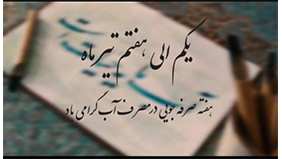 یکم الی هفتم تیر ماه
هفته صرفه جویی در مصرف آب گرامی باد